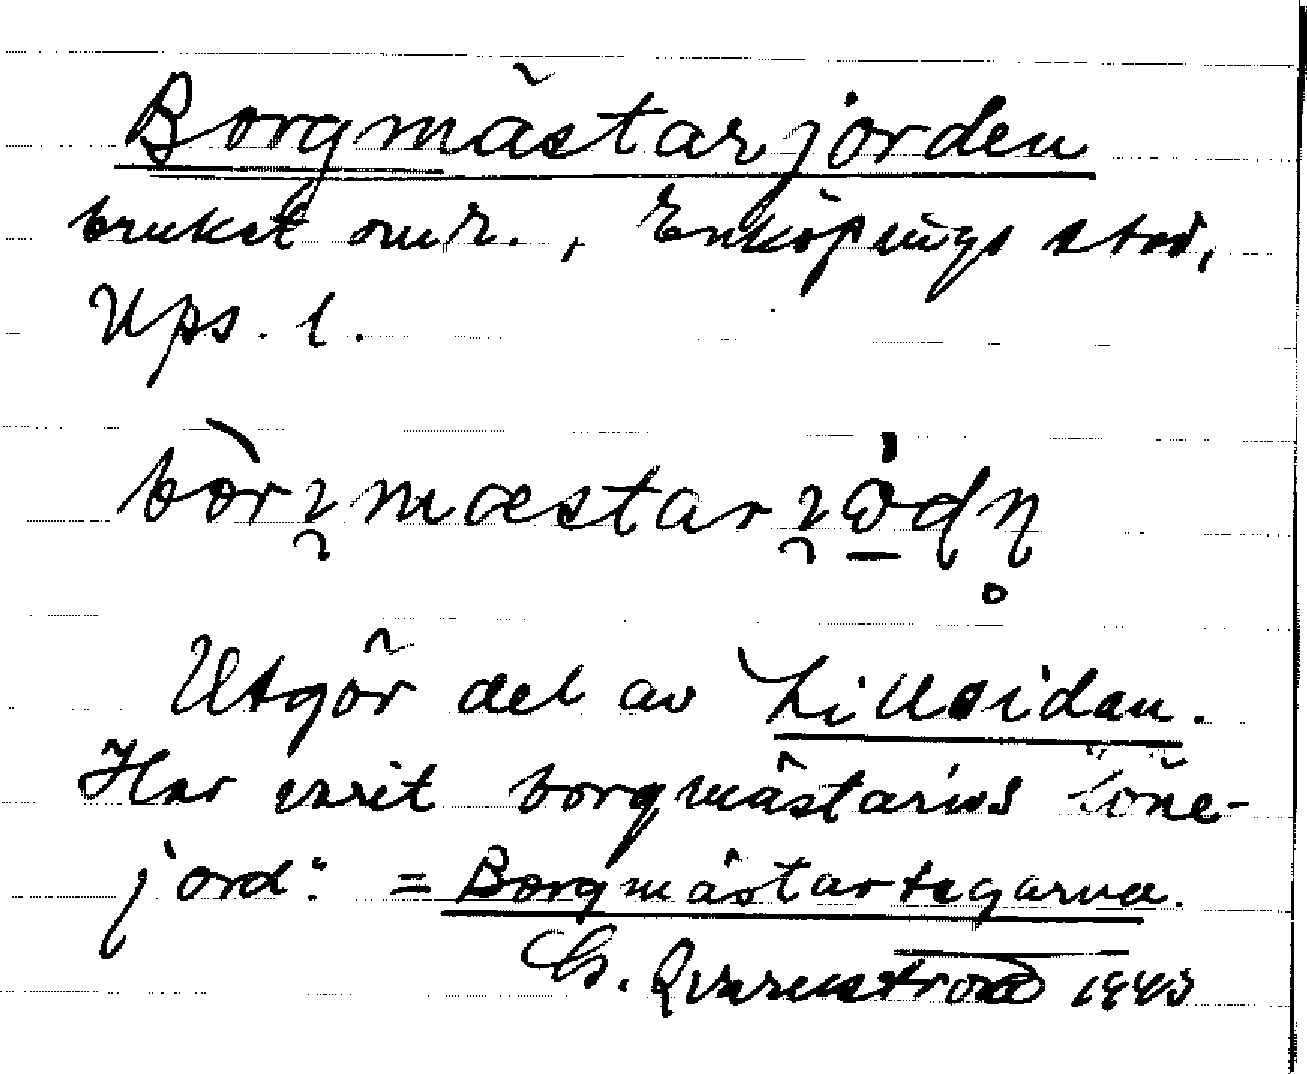 Borgmästarjorden
brukat omr., Enköpings stad,
Ups. l.
Utgör del av Lillsidan.
Har varit borgmästarens löne-
jord: = Borgmästartegarna.
G. 1943